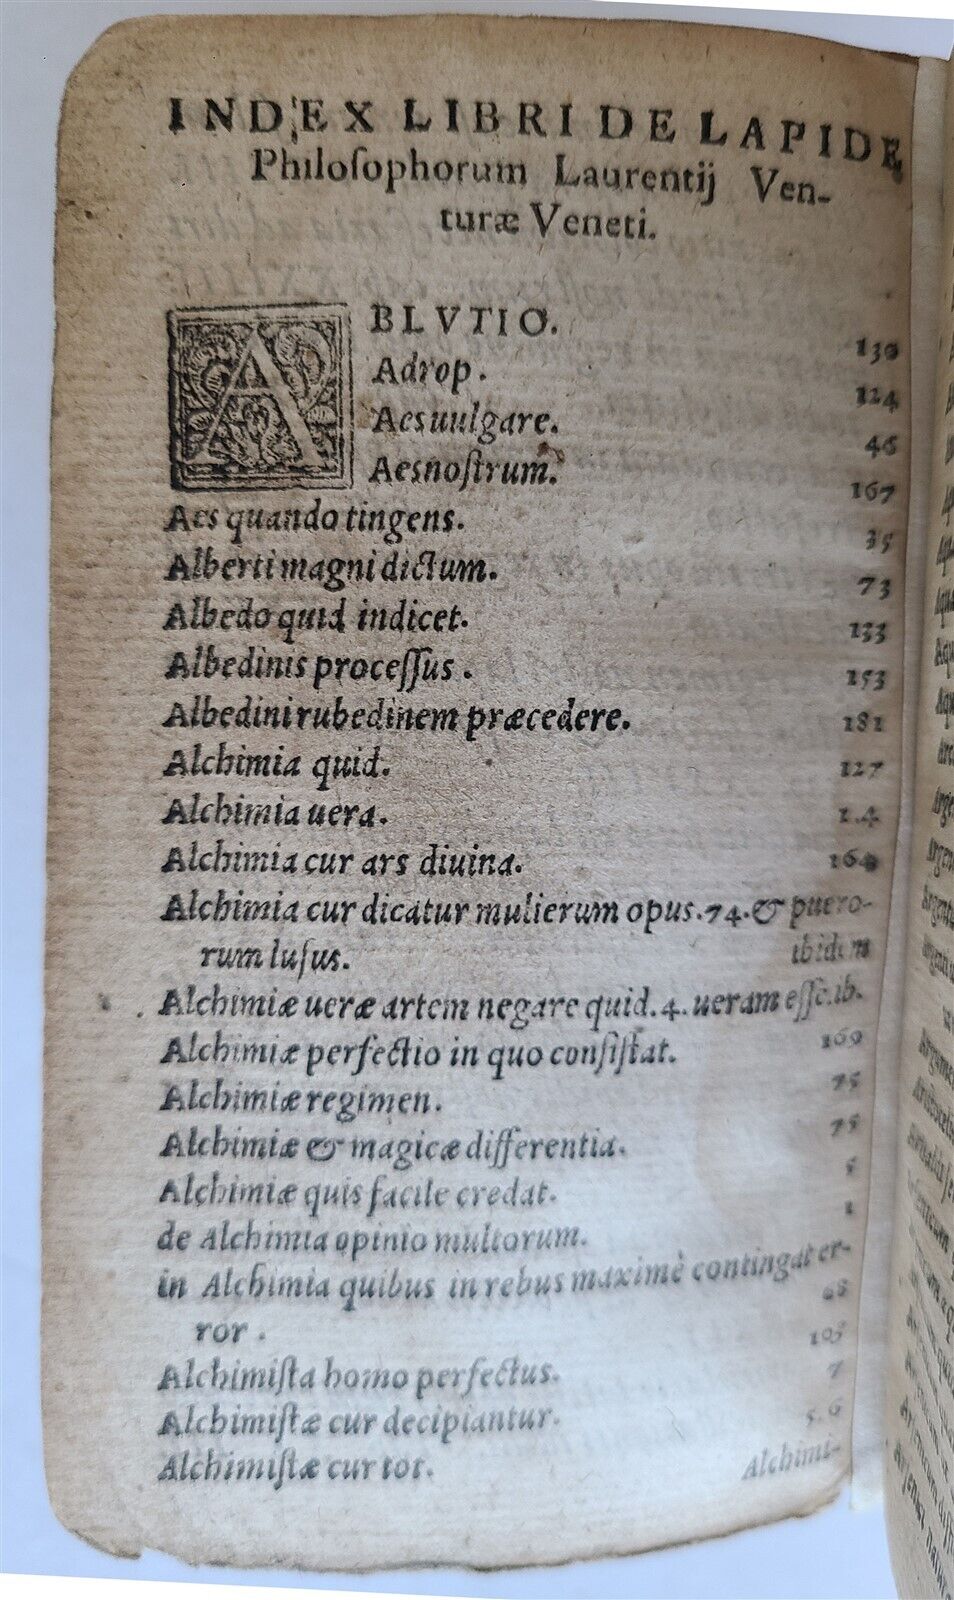 INDEX LIBRI DE LAPIDE
Philoſophorum Laurentij Ven-
turæ Veneti.
ABLVTIO. 130
Adrop. 124
Aes uulgare. 46
Aes noſtrum. 167
Aes quando tingens. 35
Alberti magni dictum. 73
Albedo quid indicet. 133
Albedinis proceſſus. 153
Albedini rubedinem præcedere. 181
Alchimia quid. 127
Alchimia uera. 1.4
Alchimia cur ars diuina. 164
Alchimia cur dicatur mulierum opus. 74. & puero-
rum luſus. ibidem
Alchimiæ ueræ artem negare quid. 4. ueram eſſe. ib.
Alchimiæ perfectio in quo conſiſtat. 169
Alchimiæ regimen. 75
Alchimiæ & magicæ differentia. 75
Alchimiæ quis facile credat. 5
de Alchimia opinio multorum. 1
in Alchimia quibus in rebus maximè contingat er-
ror. 68
Alchimiſta homo perfectus. 103
Alchimiſtæ cur decipiantur. 7
Alchimiſtæ cur tot. 5.6
Alchimi-